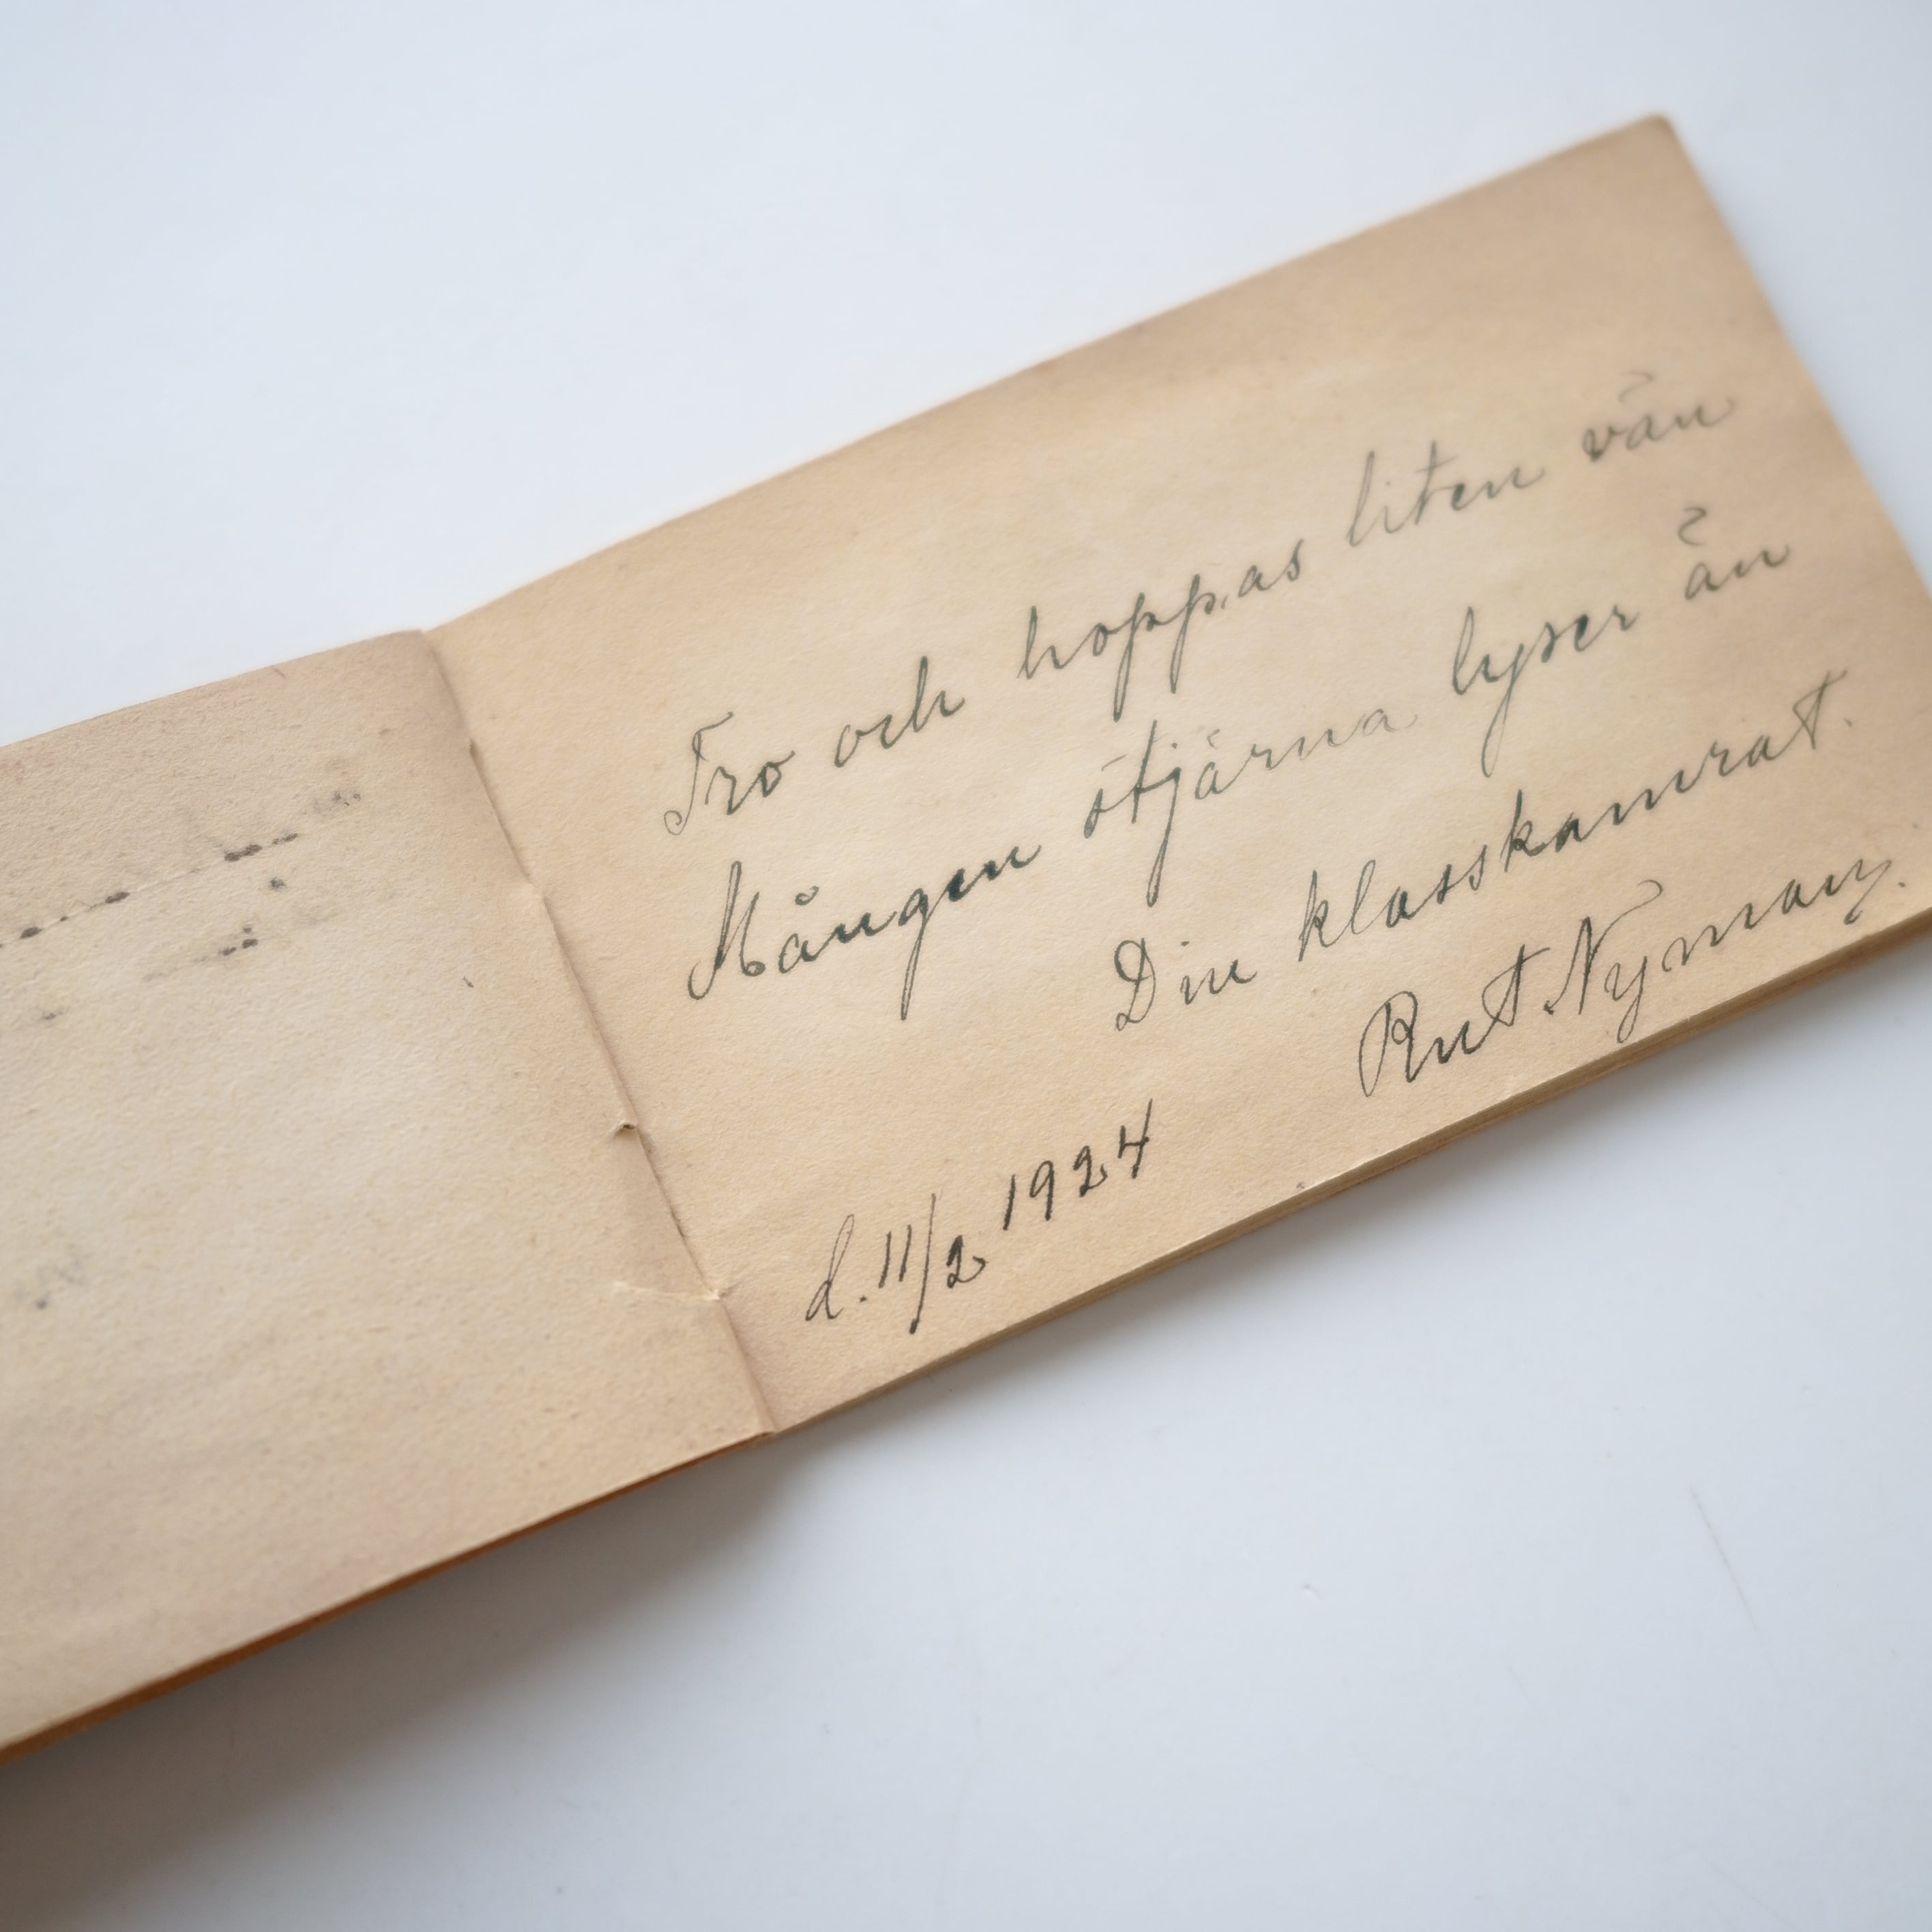 Tro och hoppas liten vän
Mången stjärna lyser än
Din klasskamrat.
Rut. Nyman.
d. 11/2 1924